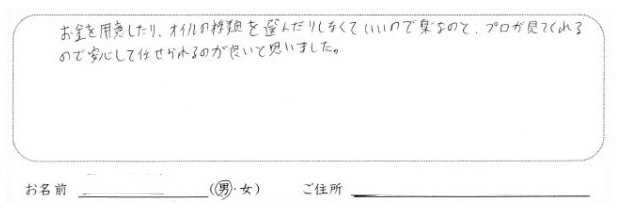 お金を用意したり、オイルの種類を選んだりしなくていいので楽なのと、プロが見てくれる
ので安心して任せられるのが良いと思いました。
お名前 (男・女) ご住所